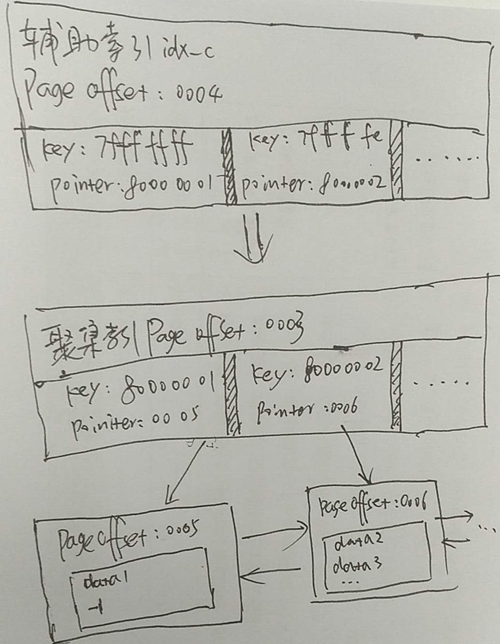 辅助索引 idx_c
Page offset: 0004
key: 7fff ffff
pointer: 8000 0001
key: 7fff fffe
pointer: 80000002
......
聚集索引 Page offset: 0003
key: 80000001
pointer: 0005
key: 80000002
pointer: 0006
......
page offset: 0005
data1
-1
page offset: 0006
data2
data3
...
...